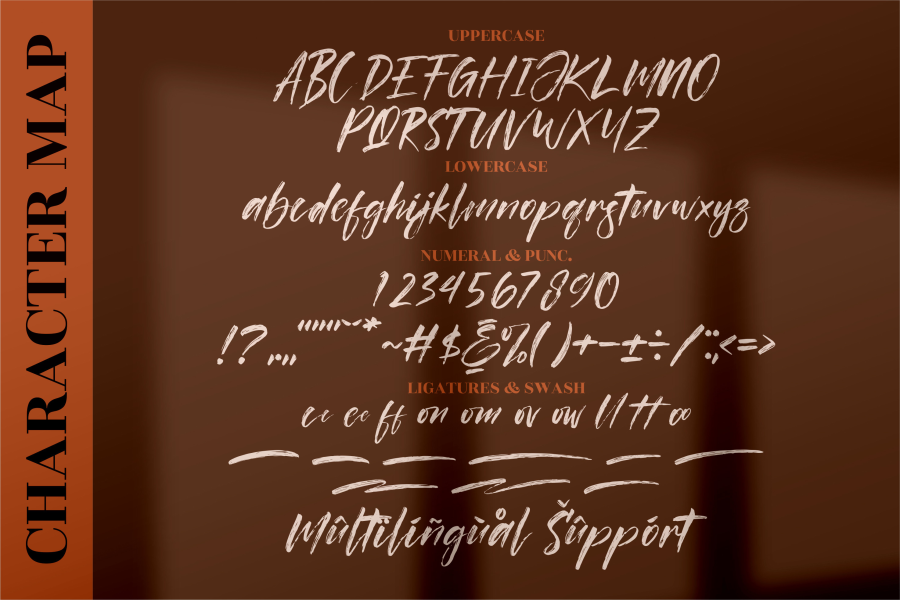 CHARACTER MAP
UPPERCASE
ABCDEFGHIJKLMNO
PQRSTUVWXYZ
LOWERCASE
abcdefghijklmnopqrstuvwxyz
NUMERAL & PUNC.
1234567890
!?
~#$&%()+-±÷/:;<=>
LIGATURES & SWASH
ff on om ov ow ll tt oo
Mûltilíñgùål Šûppórt